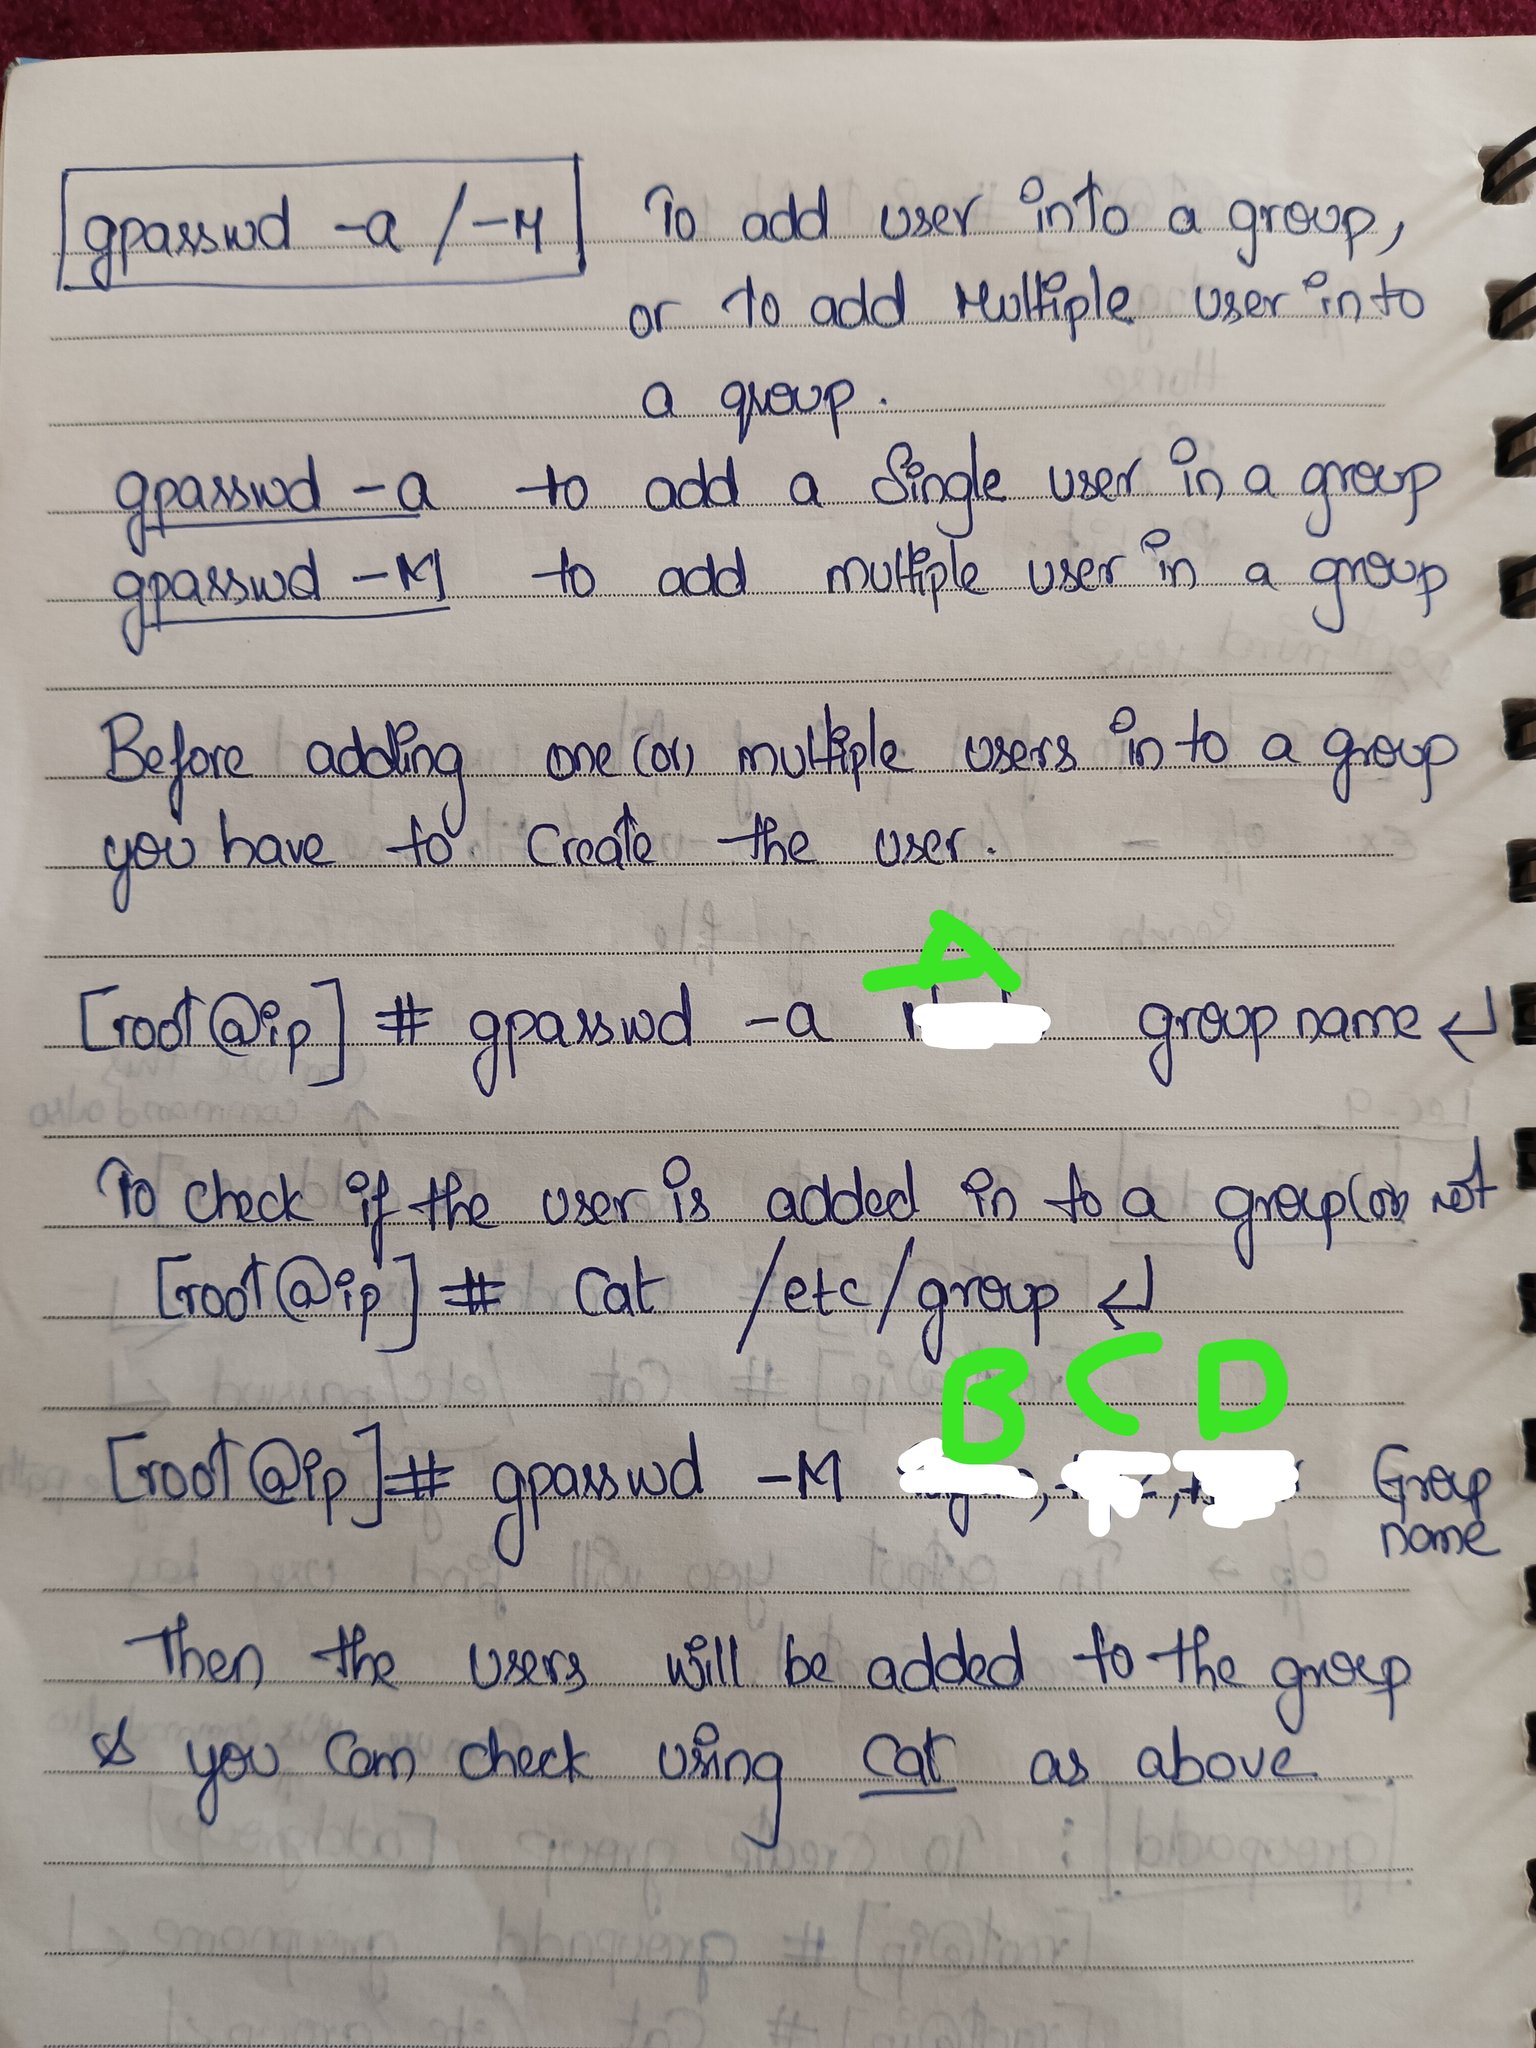 gpasswd -a / -M To add user into a group,
or To add Multiple user into
a group.
gpasswd -a to add a Single user in a group
gpasswd -M to add multiple user in a group
Before adding one (or) multiple users in to a group
you have to create the user.
A
[root@ip] # gpasswd -a groupname ↵
To check if the user is added in to a group (or) not
[root@ip] # Cat /etc/group ↵
B C D
[root@ip] # gpasswd -M , , Group
name
Then the users will be added to the group
& you can check using cat as above.